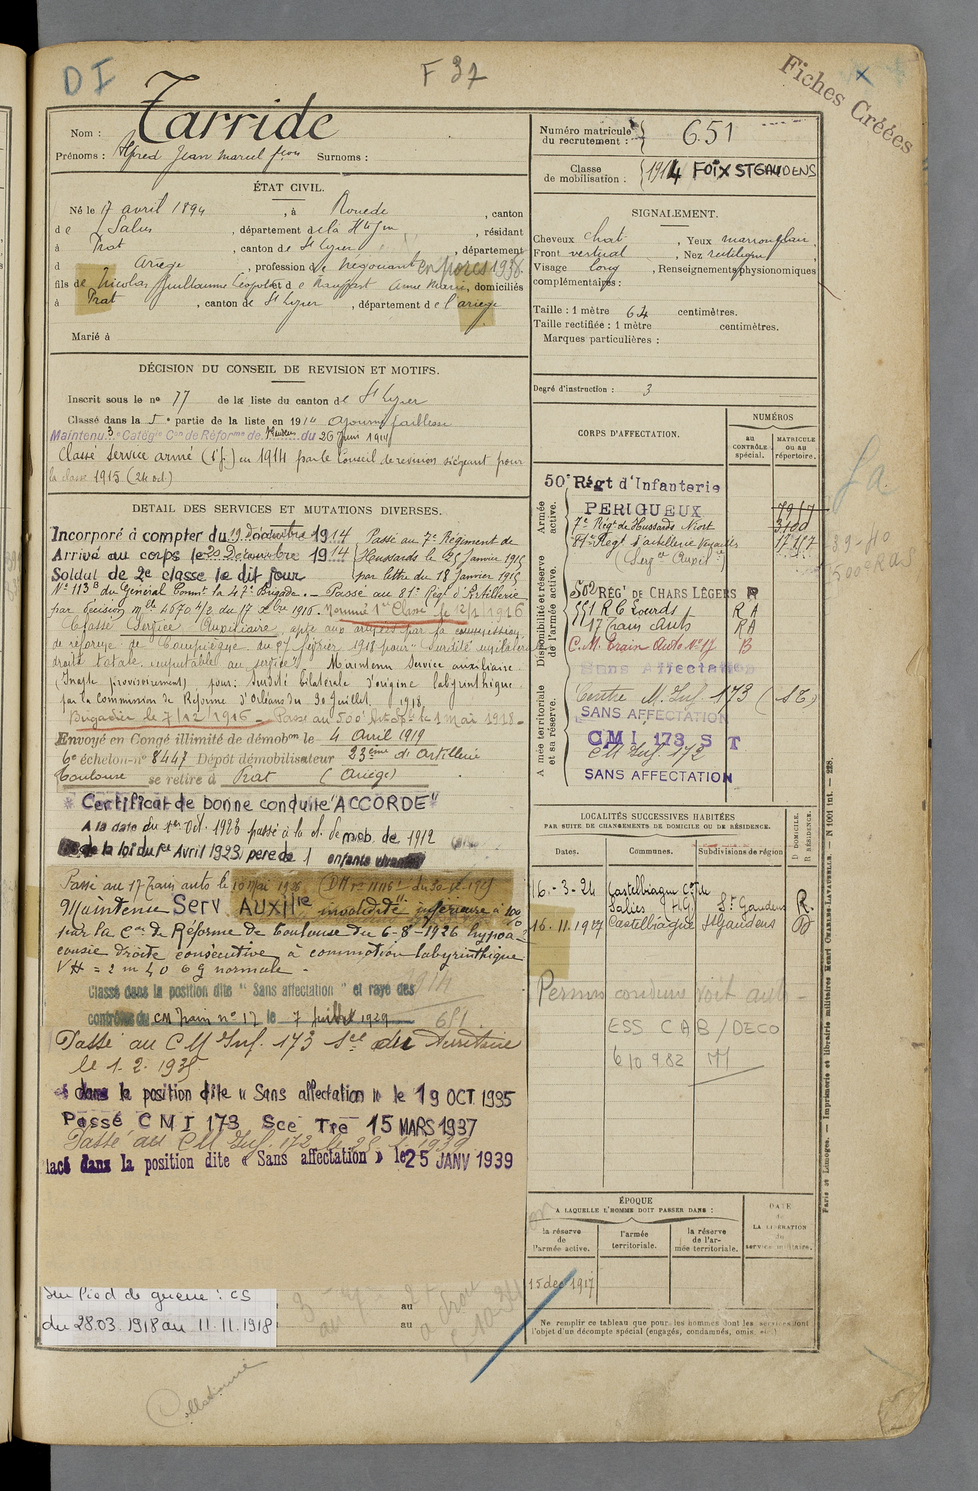 D I
F 37
Fiches Créées
Nom : Tarride
Prénoms : Alfred Jean Marcel Surnoms :
ÉTAT CIVIL.
Né le 17 avril 1894, à Rouède, canton
de Salies, département de la Hte Gne, résidant
à Prat, canton de St Lizier, département
d Ariège, profession de négociant en porcs 1938.
fils de Nicolas Guillaume Léopold et de Anne Marie, domiciliés
à Prat, canton de St Lizier, département de l'ariège
Marié à
DÉCISION DU CONSEIL DE REVISION ET MOTIFS.
Inscrit sous le no 77 de la liste du canton de St Lizier
Classé dans la 5e partie de la liste en 1914 Ajourné faiblesse
Maintenu 3e Catégie Con de Réforme de du 26 Juin 1914
Classé Service armé (1 f) en 1914 par le Conseil de revision siégeant pour
la classe 1915 (24 oct)
DETAIL DES SERVICES ET MUTATIONS DIVERSES.
Incorporé à compter du 19 Décembre 1914 Passé au 7e Régiment de
Arrivé au corps le 20 Décembre 1914 Hussards le 25 Janvier 1915
Soldat de 2e classe le dit jour par lettre du 18 Janvier 1915
No 113 B du Général Commt la 47e Brigade. - Passé au 81e Régt d'Artillerie
par décision mlle 4670 1/2 du 17 Xbre 1915. Nommé 1ere Classe le 12/1/1916
Classé Service Auxiliaire, apte aux armées par la commission
de réforme de Compiègne du 27 février 1918 pour "Surdité unilatérale
droite totale imputable au service" Maintenu Service auxiliaire
(Inapte provisoirement) pour: Surdité bilatérale d'origine labyrinthique
par la Commission de Réforme d'Orléans du 30 Juillet 1918
Brigadier le 7/12/1916 - Passé au 500e le 1 Mai 1918 -
Envoyé en Congé illimité de démobon le 4 Avril 1919
6e échelon-no 8447 Dépôt démobilisateur 23ème d'Artillerie
Toulouse se retire à Prat (Ariège)
Certificat de bonne conduite "ACCORDÉ"
A la date du 1er Oct. 1923 passé à la cl. de mob. de 1912
de la loi du 1er Avril 1923 père de 1 enfants vivants
Passé au 17 Train auto le 10 Mai 1926
Maintenu Serv Auxilre invalidité inférieure à 10%
par la Con de Réforme de Toulouse du 6-8-1926 hypoa-
cousie droite consécutive à commotion labyrinthique
VH = 2 m 40 OG normale -
Classé dans la position dite "Sans affectation" et rayé des
contrôles du CM Train no 17 le 7 Juillet 1929
1914
651
Passé au C M Inf. 173 Sce du Territoire
le 1. 2. 1935
dans la position dite « Sans affectation » le 19 OCT 1935
Passé C M I 173 Sce Tre 15 MARS 1937
Passé au CM Inf. 172 le 25 1. 1939
lacé dans la position dite « Sans affectation » le 25 JANV 1939
Sur Pied de guerre : CS
du 28.03.1918 au 11.11.1918
au
au
Collationné
Numéro matricule du recrutement : 651
Classe de mobilisation : 1914 FOIX ST GAUDENS
SIGNALEMENT.
Cheveux chat., Yeux marron
Front vertical, Nez rectiligne
Visage long, Renseignements physionomiques
complémentaires :
Taille : 1 mètre 64 centimètres.
Taille rectifiée : 1 mètre centimètres.
Marques particulières :
Degré d'instruction : 3
CORPS D'AFFECTATION.
NUMÉROS
AU CONTRÔLE spécial.
MATRICULE OU AU répertoire.
Armée active.
50e Régt d'Infanterie
PERIGUEUX
7e Régt de Hussards Niort
81e Régt d'artillerie Versailles
(Serg Auxil)
Disponibilité et réserve de l'armée active.
502 RÉGt DE CHARS LÉGERS R
551 R C Lourds R A
17 Train Auto R A
C.M. Train Auto No 17 B
Sans Affectation
Armée territoriale et sa réserve.
Centre M. Inf 173 (ST)
SANS AFFECTATION
CMI 173 S T
CM Inf. 172
SANS AFFECTATION
LOCALITÉS SUCCESSIVES HABITÉES
PAR SUITE DE CHANGEMENTS DE DOMICILE OU DE RÉSIDENCE.
Dates. Communes. Subdivisions de région D DOMICILE. R RÉSIDENCE.
16-3-24 Castelbiague Con de Salies H G. St Gaudens R.
16.11.1927 Castelbiague St Gaudens D
Permis conduire voit. auto -
ESS C A B / DECO
610982 M
ÉPOQUE
A LAQUELLE L'HOMME DOIT PASSER DANS :
la réserve de l'armée active.
l'armée territoriale.
la réserve de l'armée territoriale.
DATE de LA LIBÉRATION du service militaire.
15 dec 1917
Ne remplir ce tableau que pour les hommes dont les services font
l'objet d'un décompte spécial (engagés, condamnés, omis, etc.)
Paris et Limoges. — Imprimerie et librairie militaires Henri CHARLES-LAVAUZELLE. — N 1001 int. — 228.